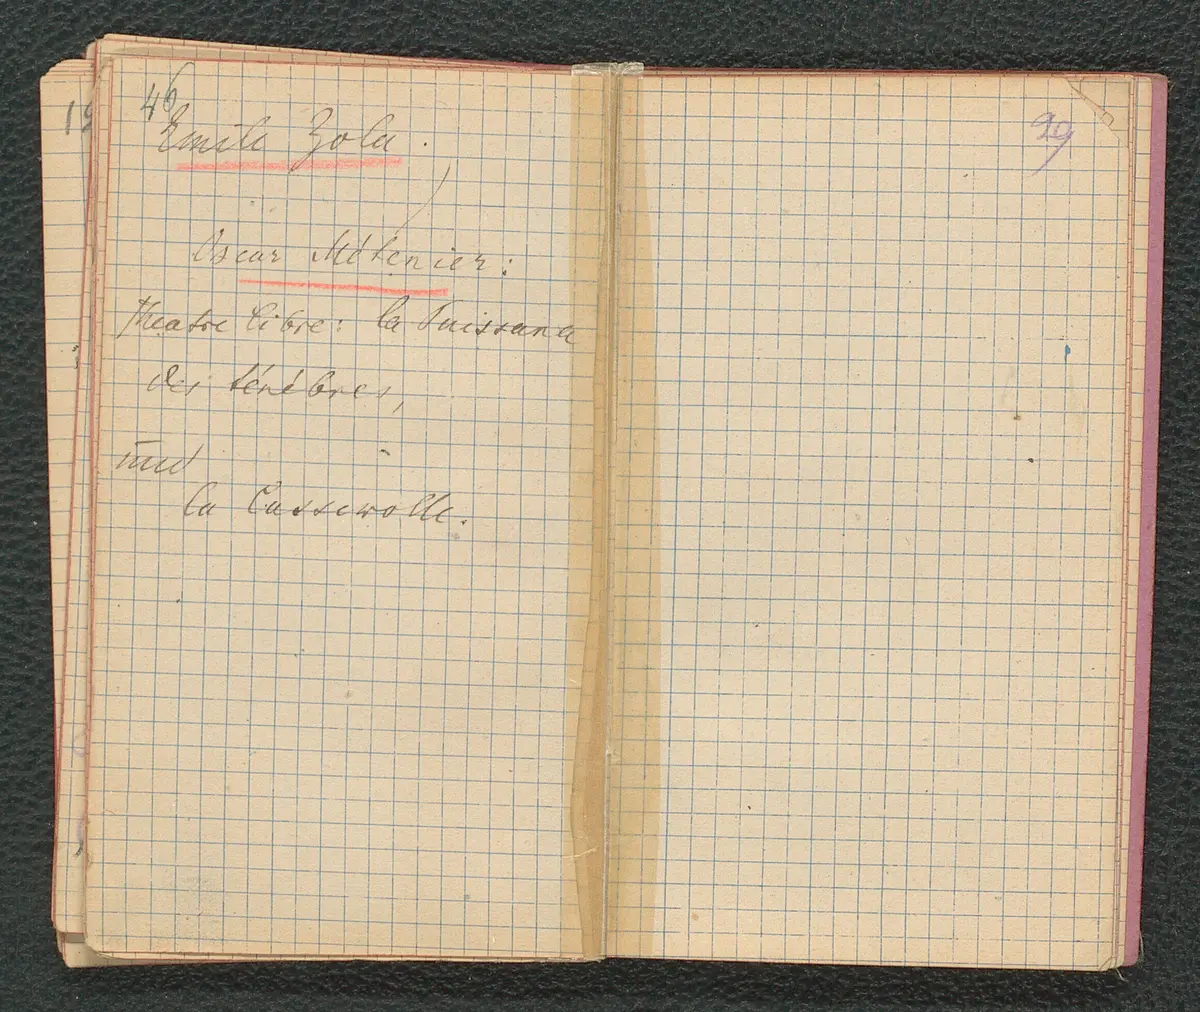 19
46
Emile Zola.
Oscar Méténier:
Theatre libre: la Puissance
des ténébres,
und
la Casserolle.
29